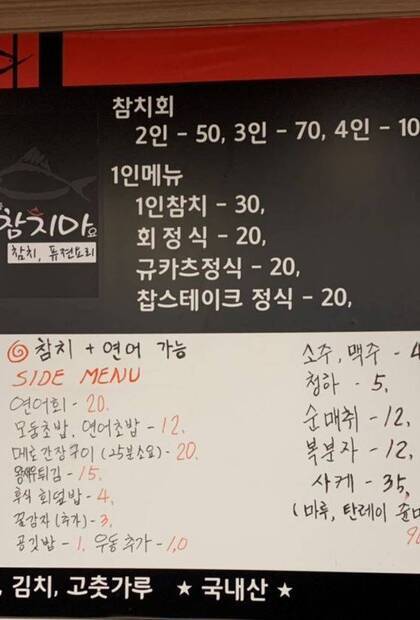 참치회
2인 - 50, 3인 - 70, 4인 - 10
1인메뉴
1인참치 - 30,
회 정식 - 20,
규카츠정식 - 20,
찹스테이크 정식 - 20,
참치마요
참치, 퓨전요리
참치 + 연어 가능
SIDE MENU
연어회 - 20.
모둠초밥, 연어초밥 - 12.
메로간장구이 (25분소요) - 20.
튀김 - 15.
후식 회덮밥 - 4,
꿀감자 (추가) - 3,
공깃밥 - 1. 우동 추가 - 1.0
소주, 맥주 - 4
청하 - 5.
순매취 - 12,
복분자 - 12,
사케 - 35,
(마루, 탄레이 준마
, 김치, 고춧가루 ★ 국내산 ★